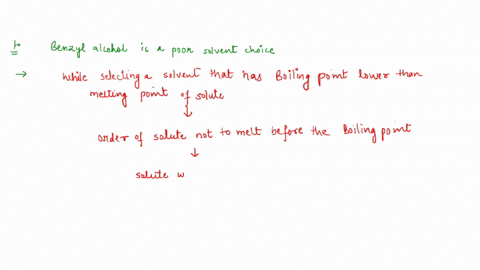 1. Benzyl alcohol is a poor solvent choice
→ While selecting a solvent that has Boiling point lower than
melting point of solute
↓
order of solute not to melt before the Boiling point
↓
solute w